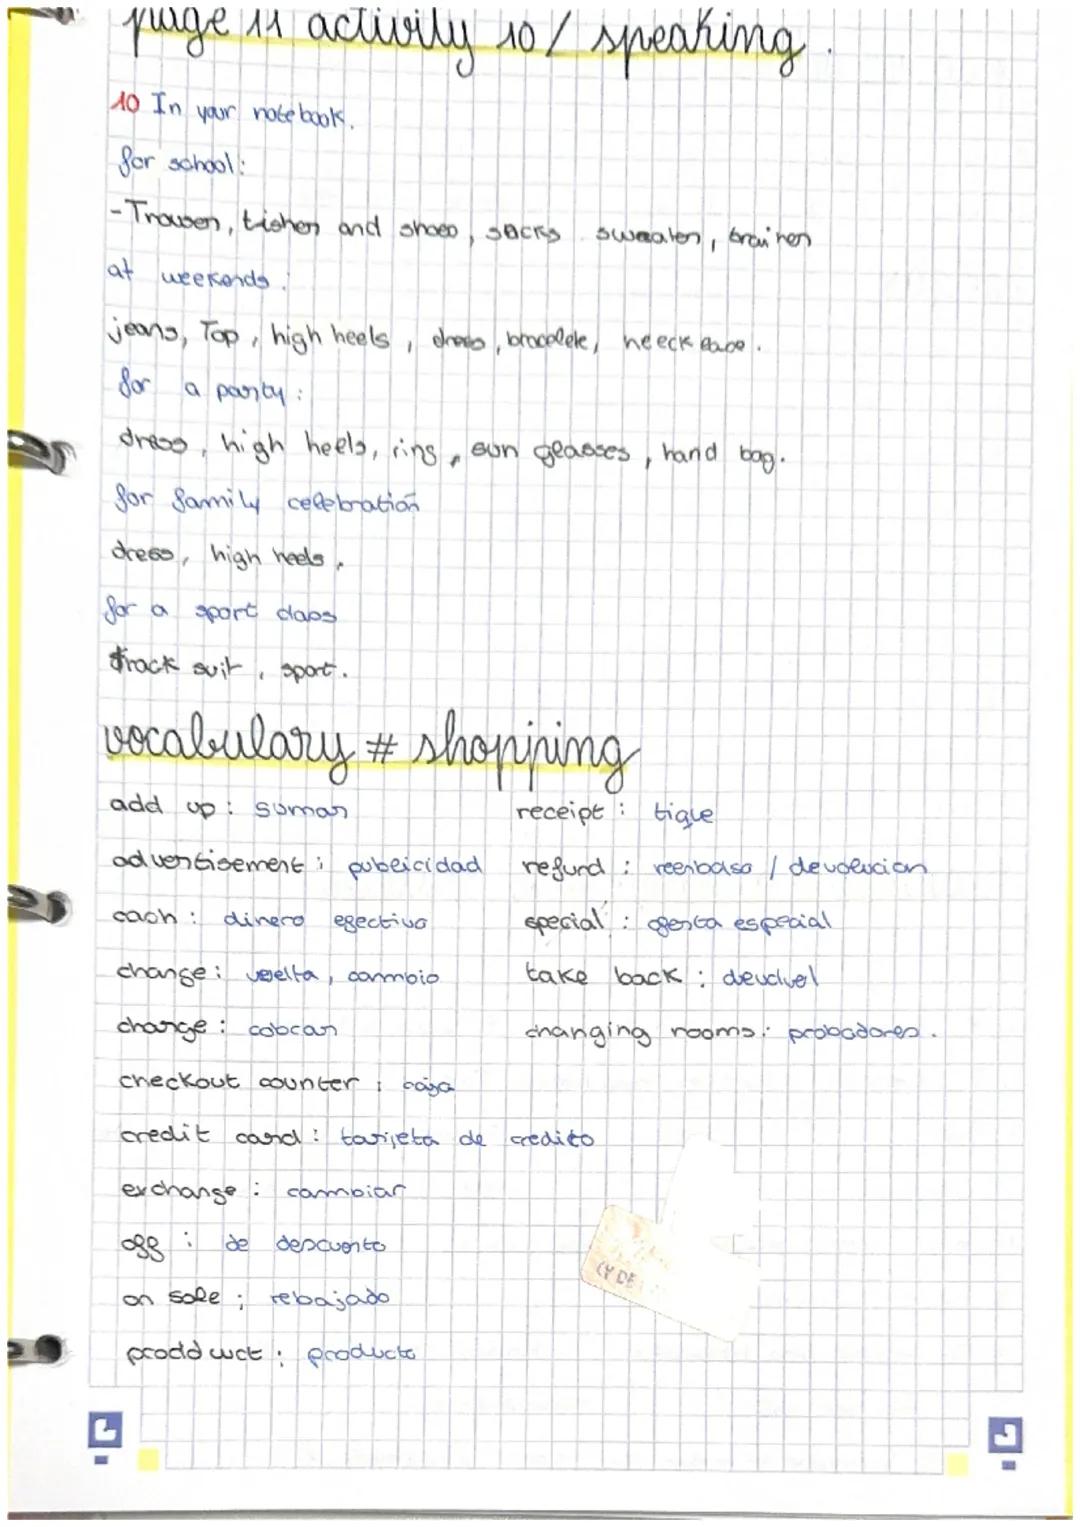 page 11 activity 10 / speaking.
10 In your notebook.
for school:
- Trouser, tisher and shoes, socks sweater, trainer
at weekends:
jeans, Top, high heels, dress, bracelete, neecklace.
for a party:
dress, high heels, ring, sun glasses, hand bag.
for family celebration
dress, high heels.
for a sport class
track suit, sport.
vocabulary # shopping
add up: sumar
advertisement: publicidad
cash: dinero efectivo
change: vuelta, cambio
charge: cobrar
checkout counter: caja
credit card: tarjeta de credito
exchange: cambiar
off: de descuento
on sale: rebajado
prodduct: producto
receipt: tique
refund: reenbolso / devolucion
special: oferta especial
take back: devolver
changing rooms: probadores.
(Y DE